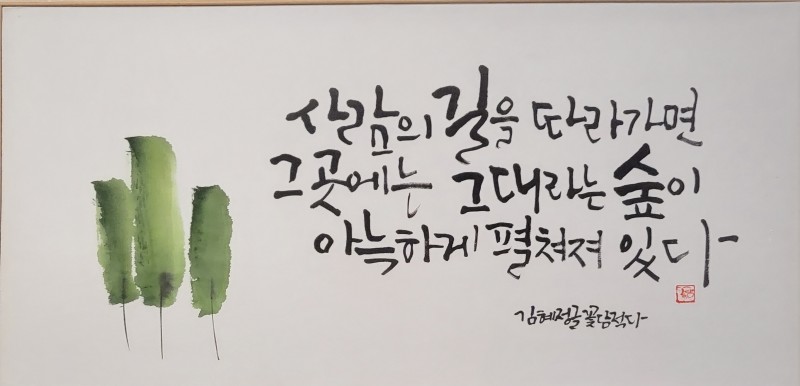 사람의 길을 따라가면
그곳에는 그대라는 숲이
아늑하게 펼쳐져 있다
김혜정글 꽃담적다